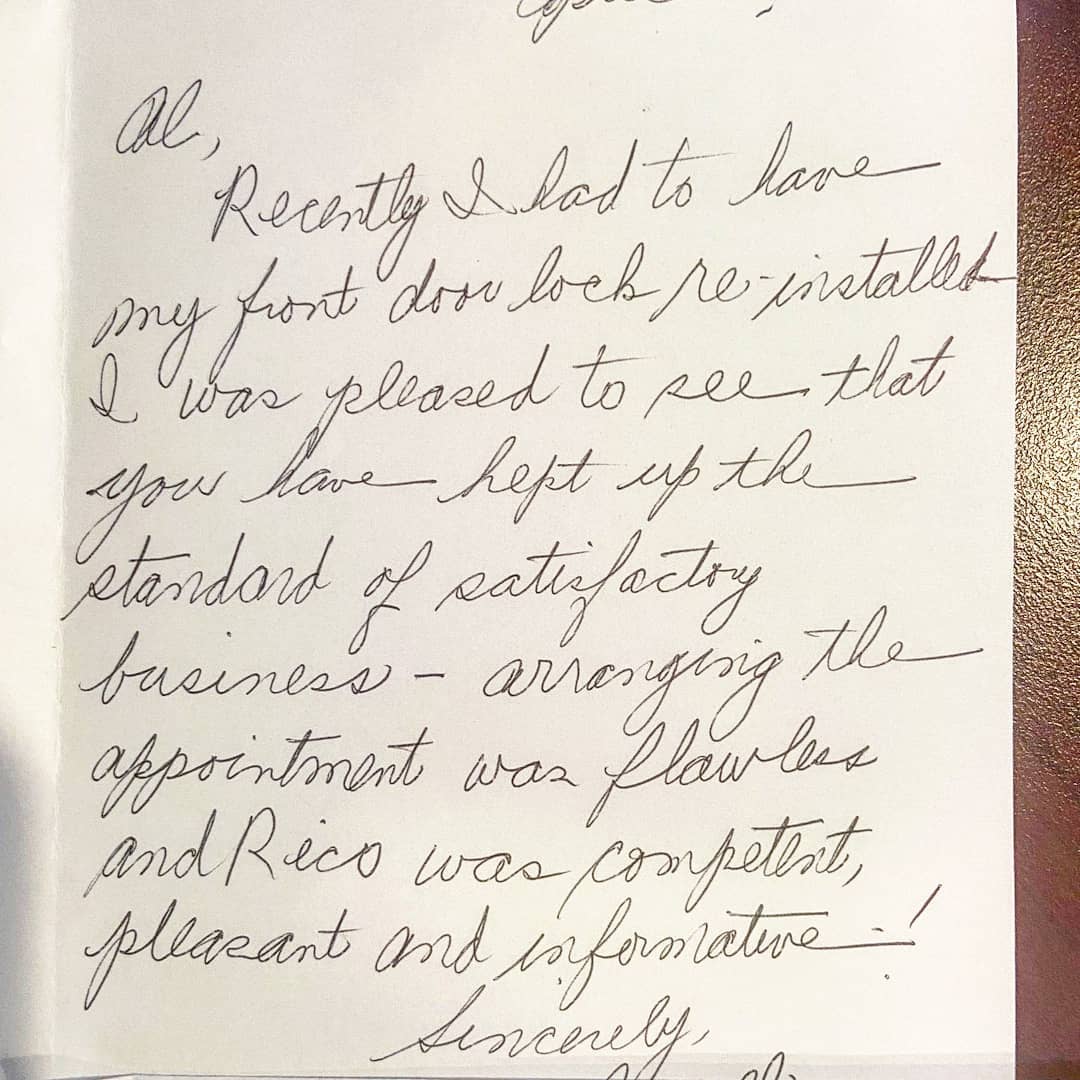 Al,
Recently I had to have
my front door lock re-installed
I was pleased to see that
you have kept up the
standard of satisfactory
business - arranging the
appointment was flawless
and Rico was competent,
pleasant and informative - !
Sincerely,